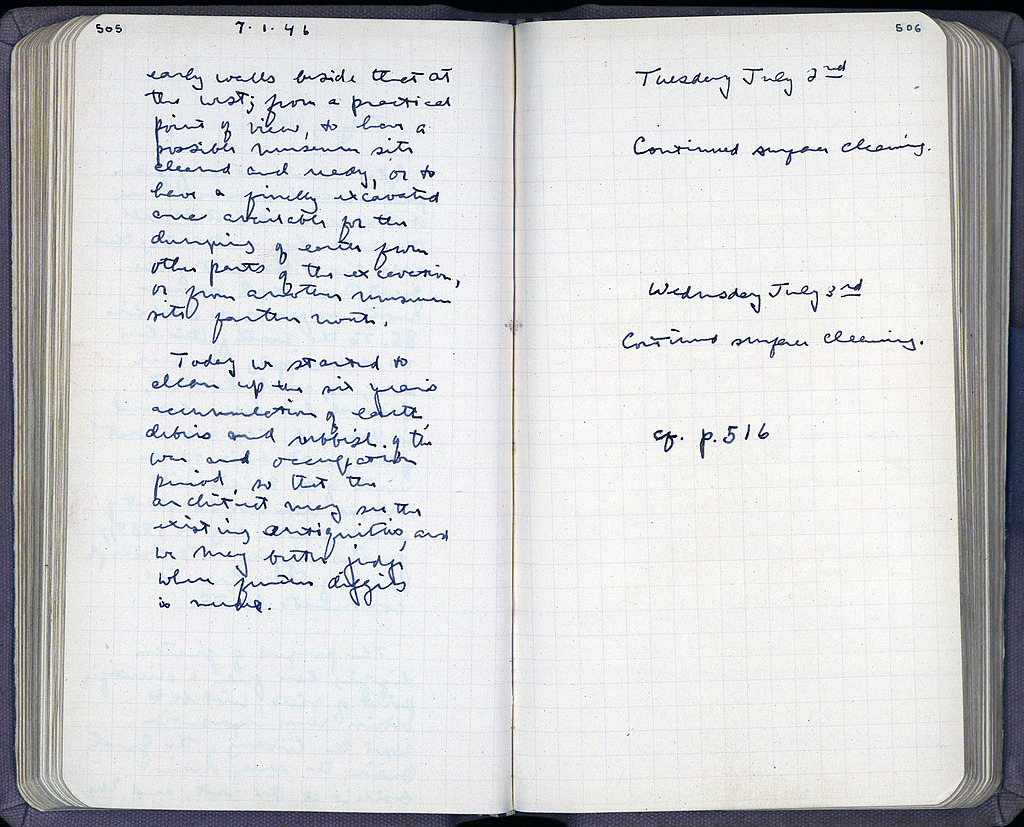 505
7.1.46
early walls beside that at
the west; from a practical
point of view, to have a
possible museum site
cleared and ready, or to
have a finally excavated
area available for the
dumping of earth from
other parts of the excavation,
or from another museum
site farther north.
Today we started to
clean up the six years
accumulation of earth,
debris and rubbish of the
war and occupation
period, so that the
architect may see the
existing antiquities, and
we may better judge
where further digging
is needed.
506
Tuesday July 2nd
Continued surface cleaning.
Wednesday July 3rd
Continued surface cleaning.
cf. p. 516